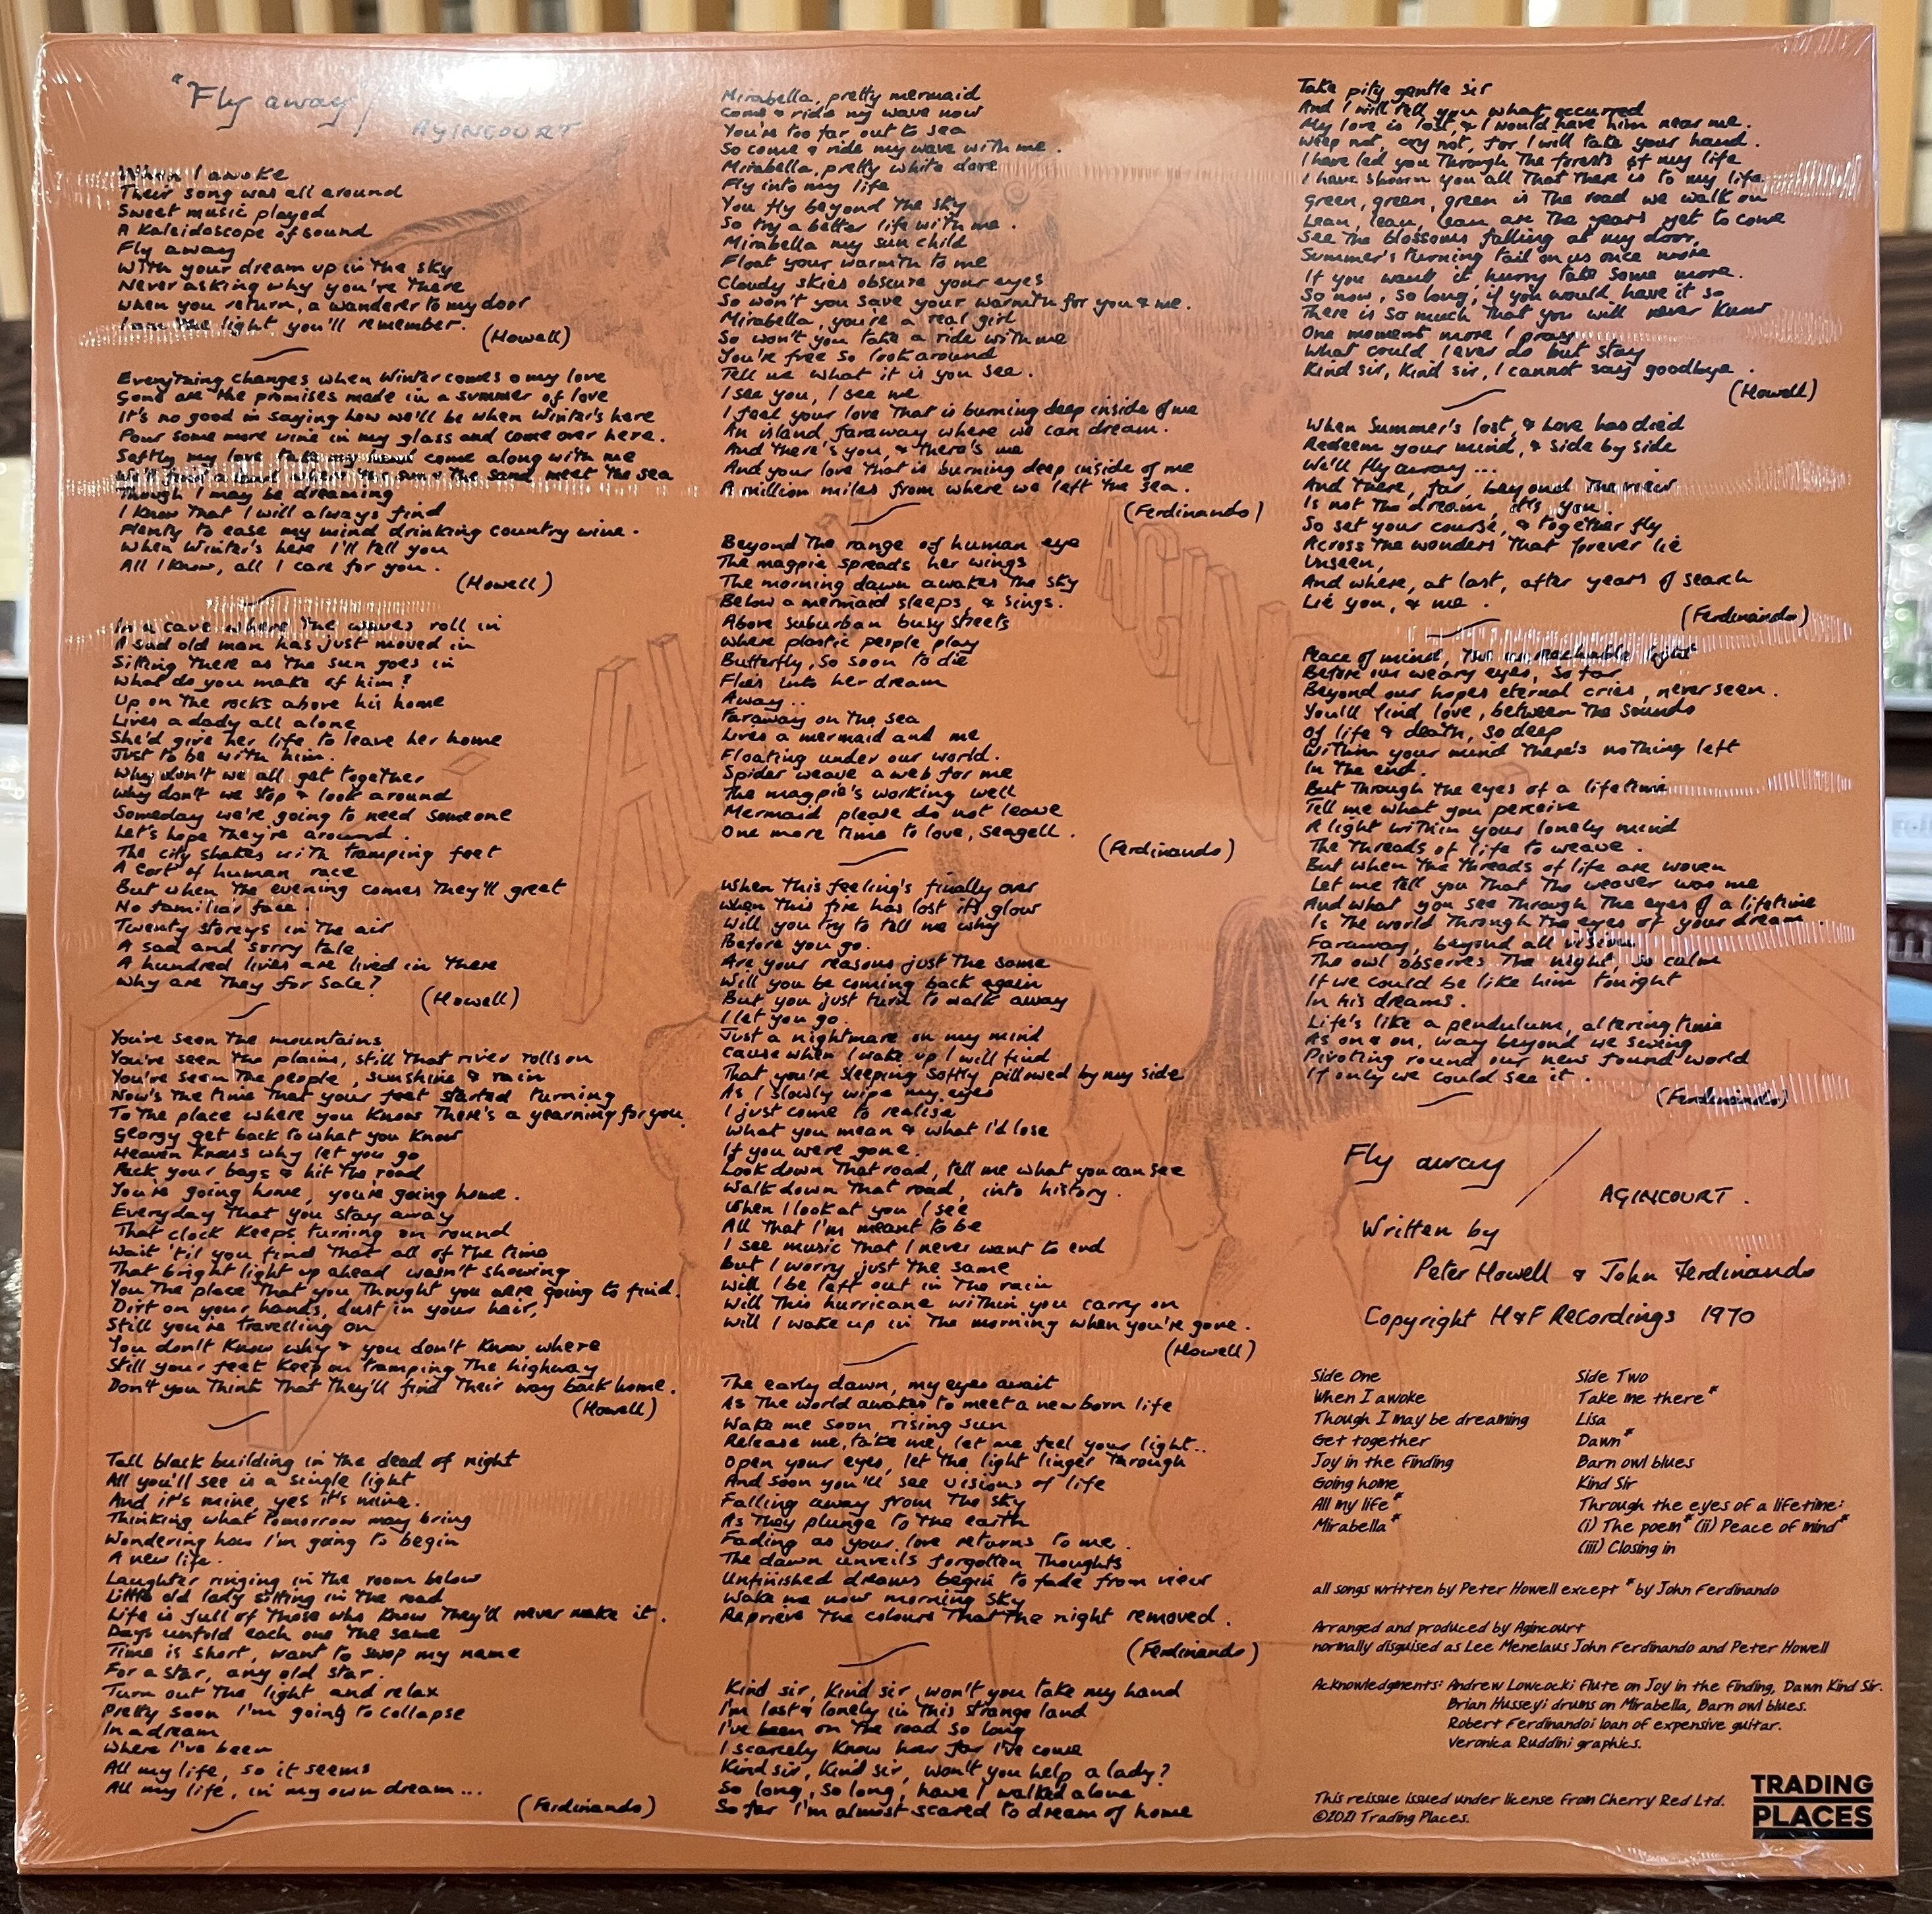 "Fly away /
AGINCOURT
When I awoke
Their song was all around
Sweet music played
A Kaleidoscope of sound
Fly away
With your dream up in the sky
Never asking why you're there
When you return, a wanderer to my door
I am the light you'll remember.
(Howell)
Everything changes when Winter comes o my love
Gone are the promises made in a summer of love
It's no good in saying how we'll be when Winter's here
Pour some more wine in my glass and come over here.
Softly my love take my hand come along with me
We'll find a land where the sun & the sand meet the sea
Though I may be dreaming
I Know that I will always find
Plenty to ease my mind drinking country wine.
When Winter's here I'll tell you
All I Know, all I care for you.
(Howell)
In a cave where the waves roll in
A sad old man has just moved in
Sitting there as the sun goes in
What do you make of him?
Up on the rocks above his home
Lives a lady all alone
She'd give her life to leave her home
Just to be with him.
Why don't we all get together
Why don't we stop & look around
Someday we're going to need someone
Let's hope they're around.
The city shakes with tramping feet
A sort of human race
But when the evening comes they'll greet
No familiar face.
Twenty storeys in the air
A sad and sorry tale
A hundred lives are lived in there
Why are they for sale?
(Howell)
You've seen the mountains
You've seen the plains, still that river rolls on
You've seen the people, sunshine & rain
Now's the time that your feet started turning
To the place where you Know there's a yearning for you.
Georgy get back to what you Know
Heaven Knows why let you go
Pack your bags & hit the road
You're going home, you're going home.
Everyday that you stay away
That clock Keeps turning on round
Wait 'til you find that all of the time
That bright light up ahead wasn't showing
You the place that you thought you were going to find.
Dirt on your hands, dust in your hair,
Still you're travelling on
You don't Know why & you don't Know where
Still your feet Keep on tramping the highway
Don't you think that they'll find their way back home.
(Howell)
Tall black building in the dead of night
All you'll see is a single light
And it's mine, yes it's mine.
Thinking what tomorrow may bring
Wondering how I'm going to begin
A new life.
Laughter ringing in the room below
Little old lady sitting in the road
Life is full of those who Know they'll never make it.
Days unfold each one the same
Time is short, want to swop my name
For a star, any old star.
Turn out the light and relax
Pretty soon I'm going to collapse
In a dream
Where I've been
All my life, so it seems
All my life, in my own dream...
(Ferdinando)
Mirabella, pretty mermaid
Come & ride my wave now
You're too far out to sea
So come & ride my wave with me.
Mirabella, pretty white dove
Fly into my life
You fly beyond the sky
So try a better life with me.
Mirabella my sun child
Float your warmth to me
Cloudy skies obscure your eyes
So won't you save your warmth for you & me.
Mirabella, you're a real girl
So won't you take a ride with me
You're free so look around
Tell me what it is you see.
I see you, I see me
I feel your love that is burning deep inside of me
An island faraway where we can dream.
And there's you, & there's me
And your love that is burning deep inside of me
A million miles from where we left the sea.
(Ferdinando)
Beyond the range of human eye
The magpie spreads her wings
The morning dawn awakes the sky
Below a mermaid sleeps, & sings.
Above suburban busy streets
Where plastic people play
Butterfly, so soon to die
Flies into her dream
Away..
Faraway on the sea
Lives a mermaid and me
Floating under our world.
Spider weave a web for me
The magpie's working well
Mermaid please do not leave
One more time to love, seagell.
(Ferdinando)
When this feeling's finally over
When this fire has lost it's glow
Will you try to tell me why
Before you go.
Are your reasons just the same
Will you be coming back again
But you just turn to walk away
I let you go.
Just a nightmare on my mind
Cause when I wake up I will find
That you're sleeping softly pillowed by my side
As I slowly wipe my eyes
I just come to realise
What you mean & what I'd lose
If you were gone.
Look down that road, tell me what you can see
Walk down that road, into history.
When I look at you I see
All that I'm meant to be
I see music that I never want to end
But I worry just the same
Will I be left out in the rain
Will this hurricane within you carry on
Will I wake up in the morning when you're gone.
(Howell)
The early dawn, my eyes await
As the world awakes to meet a new born life
Wake me soon, rising sun
Release me, take me, let me feel your light..
Open your eyes, let the light linger through
And soon you'll see visions of life
Falling away from the sky
As they plunge to the earth
Fading as your love returns to me.
The dawn unveils forgotten thoughts
Unfinished dreams begin to fade from view
Wake me now morning sky
Reprieve the colours that the night removed.
(Ferdinando)
Kind sir, Kind sir, won't you take my hand
I'm lost & lonely in this strange land
I've been on the road so long
I scarcely Know how far I've come
Kind sir, Kind sir, won't you help a lady?
So long, so long, have I walked alone
So far I'm almost scared to dream of home
Take pity gentle sir
And I will tell you what occurred
My love is lost, & I would have him near me.
Weep not, cry not, for I will take your hand.
I have led you through the forests of my life
I have shown you all that there is to my life.
Green, green, green is the road we walk on
Lean, lean, lean are the years yet to come
See the blossoms falling at my door,
Summer's turning tail on us once more
If you want it, hurry take some more.
So now, so long, if you would have it so
There is so much that you will never Know
One moment more I pray
What could I ever do but stay
Kind sir, Kind sir, I cannot say goodbye.
(Howell)
When Summer's lost, & love has died
Redeem your mind, & side by side
We'll fly away...
And there, far, beyond the view
Is not the dream, it's you.
So set your course, & together fly
Across the wonders that forever lie
Unseen,
And where, at last, after years of search
Lie you, & me.
(Ferdinando)
Peace of mind, the unreachable light
Before our weary eyes, so far
Beyond our hopes eternal cries, never seen.
You'll find love, between the sounds
Of life & death, so deep
Within your mind there's nothing left
In the end.
But through the eyes of a lifetime
Tell me what you perceive
A light within your lonely mind
The threads of life to weave.
But when the threads of life are woven
Let me tell you that the weaver was me
And what you see through the eyes of a lifetime
Is the world through the eyes of your dream.
Faraway, beyond all vision
The owl observes the night, so calm
If we could be like him tonight
In his dreams.
Life's like a pendulum, altering time
As on & on, way beyond we swing
Pivoting round our new found world
If only we could see it.
(Ferdinando)
Fly away /
AGINCOURT.
Written by
Peter Howell & John Ferdinando
Copyright H&F Recordings 1970
Side One
When I awoke
Though I may be dreaming
Get together
Joy in the finding
Going home
All my life*
Mirabella*
Side Two
Take me there*
Lisa
Dawn*
Barn owl blues
Kind Sir
Through the eyes of a lifetime:
(i) The poem* (ii) Peace of mind*
(iii) Closing in
all songs written by Peter Howell except * by John Ferdinando
Arranged and produced by Agincourt
normally disguised as Lee Menelaus John Ferdinando and Peter Howell
Acknowledgments: Andrew Lowcock: flute on Joy in the Finding, Dawn Kind Sir.
Brian Hussey: drums on Mirabella, Barn owl blues.
Robert Ferdinando: loan of expensive guitar.
Veronica Ruddini graphics.
This reissue issued under license from Cherry Red Ltd.
©2021 Trading Places.
TRADING
PLACES